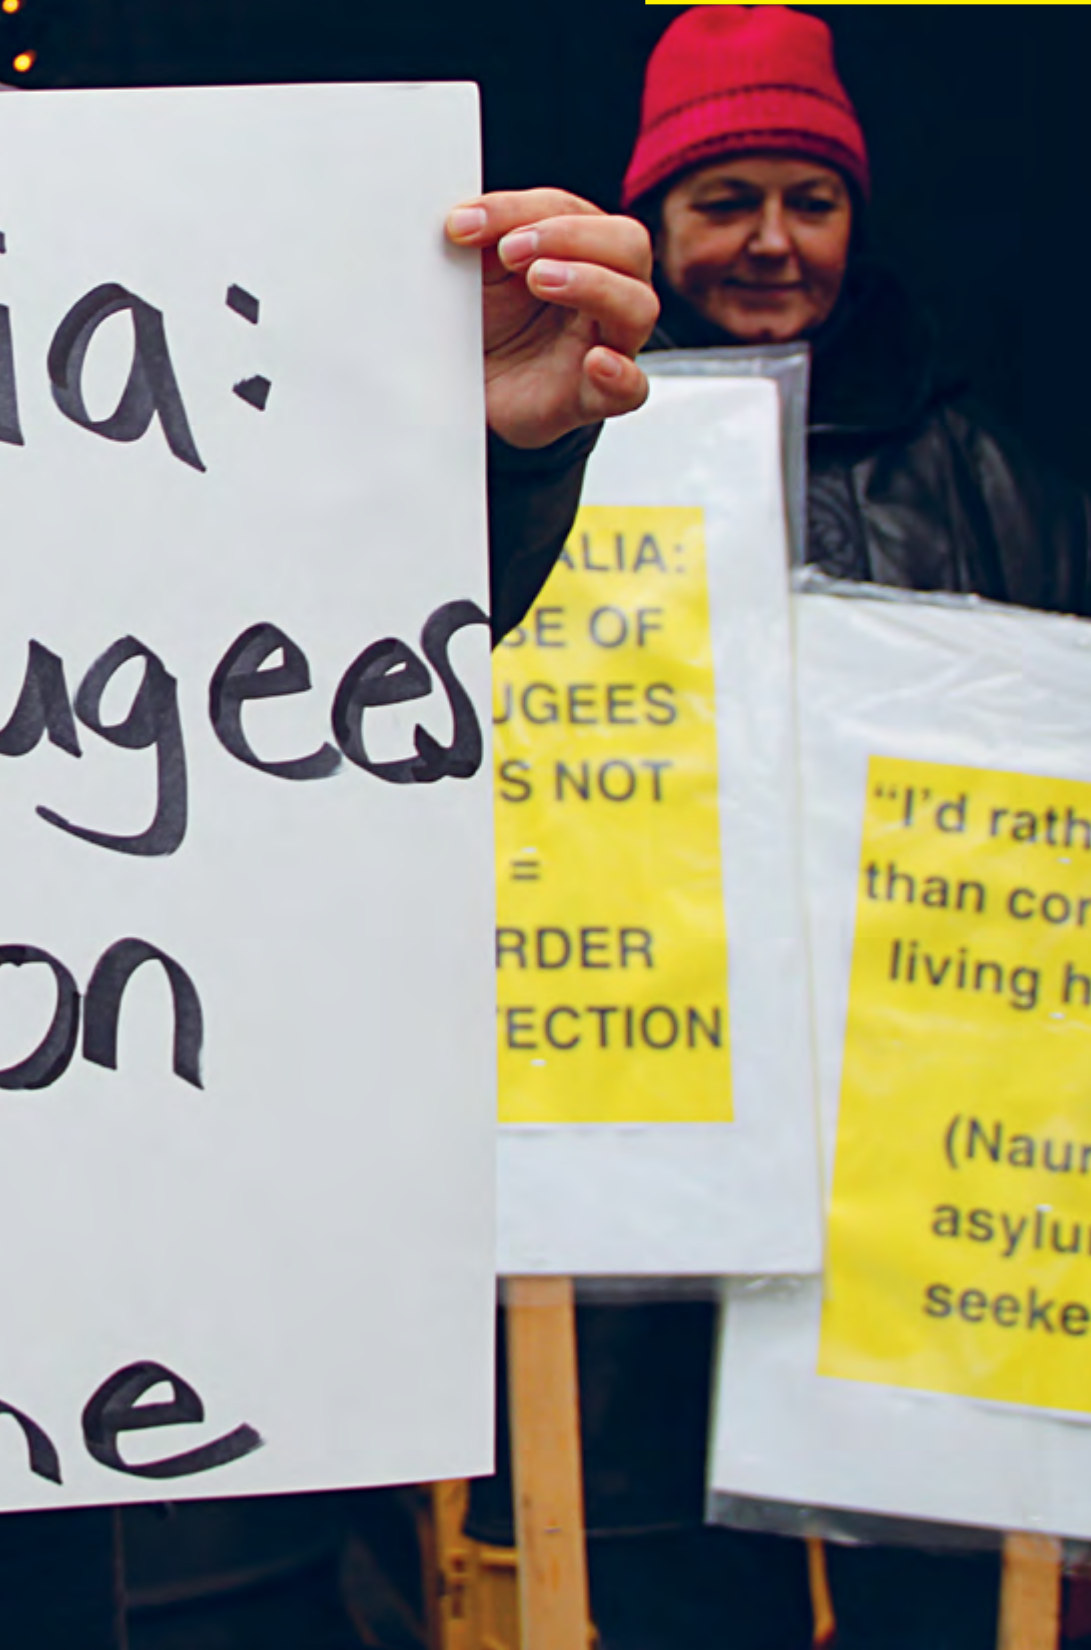 ia:
ugees
on
ne
ALIA:
SE OF
UGEES
S NOT
=
RDER
TECTION
"I'd rath
than con
living h
(Naur
asylu
seeke